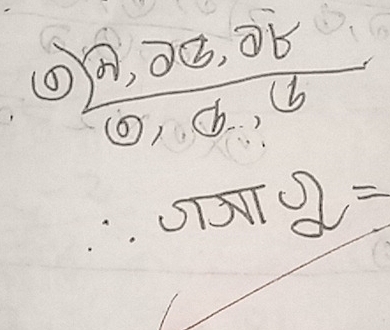 ৩)৯, ১৫, ১৮
৩, ৫, ৬
∴ গসাগু =